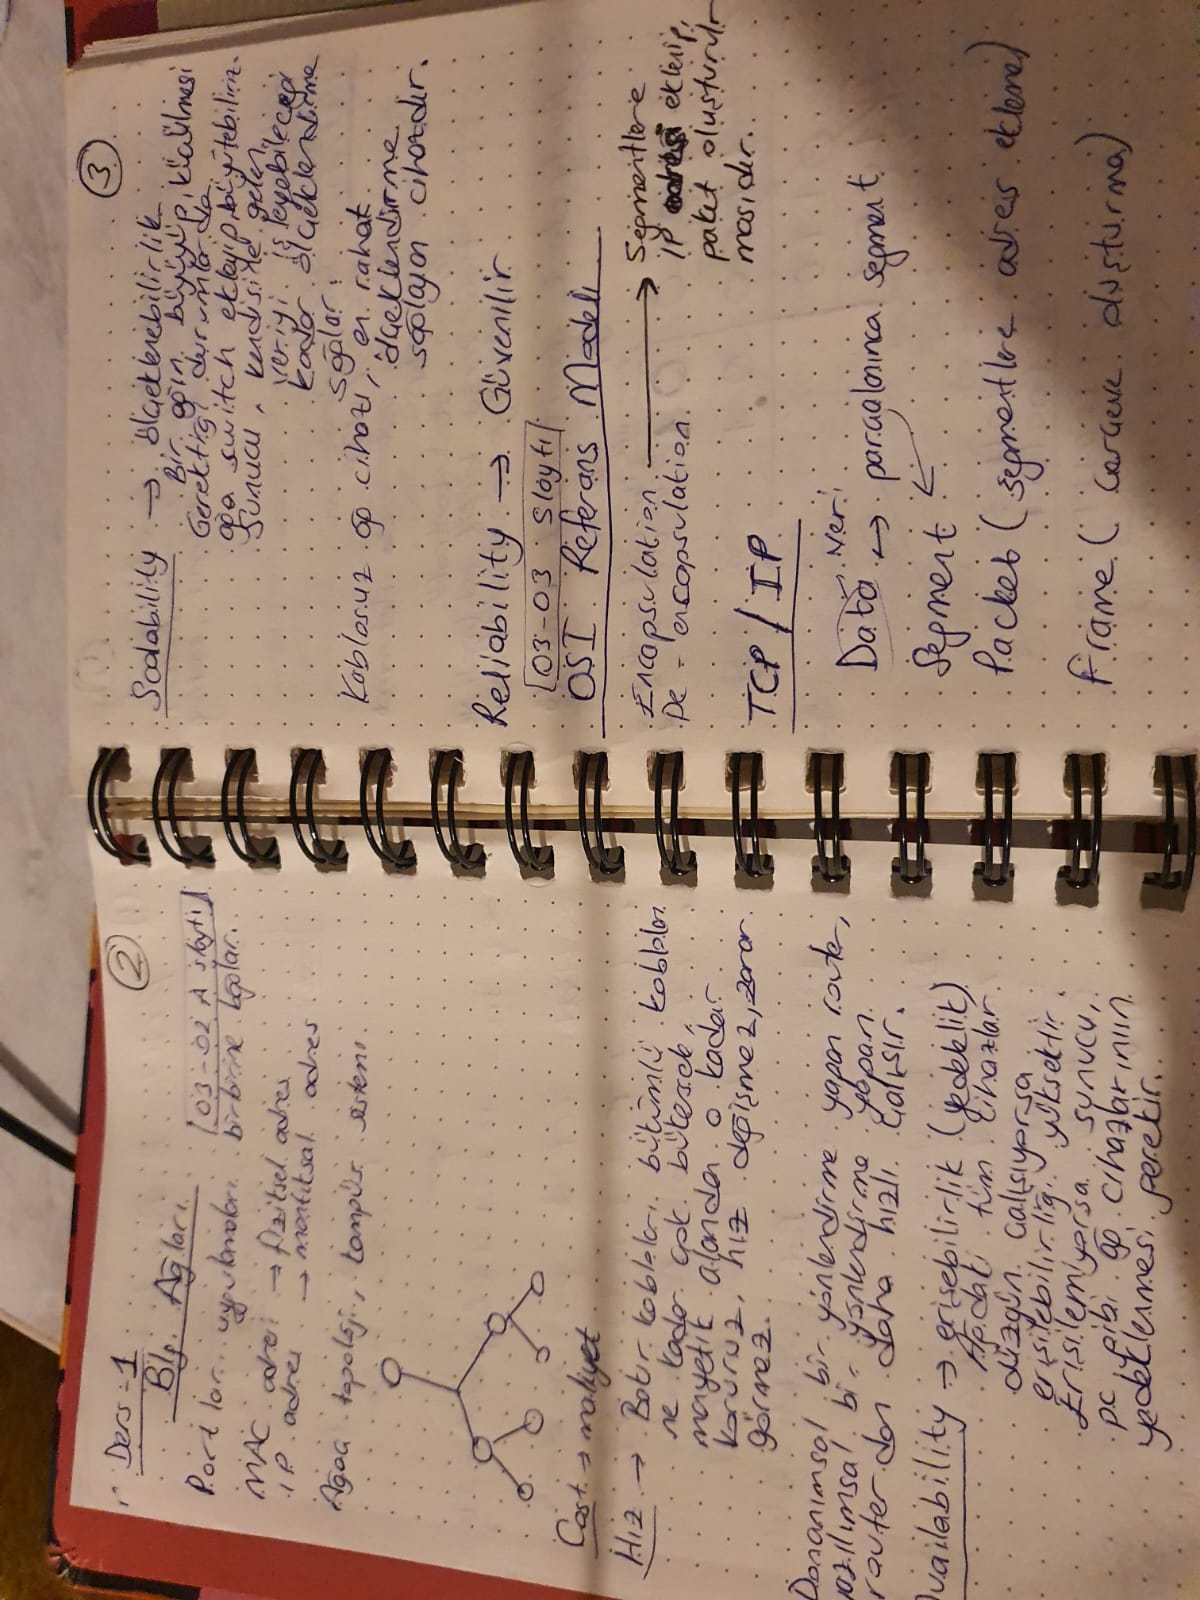 Ders-1
2
Blg. Ağları
03-02 A slaytı
Portlar uygulamaları birbirine bağlar.
MAC adresi → fiziksel adres
IP adres → mantıksal adres
Ağaç topoloji, kampüs sistemi.
Cost → maliyet
Hız → Bakır kabloları bükümlü kabloları
ne kadar çok bükersek,
manyetik alandan o kadar
koruruz, hız değişmez, zarar
görmez.
Donanımsal bir yönlendirme yapan router,
yazılımsal bir yönlendirme yapan
router dan daha hızlı çalışır.
Availability → erişebilirlik (yedeklik)
Ağdaki tüm cihazlar
düzgün çalışıyorsa
erişilebilirliği yüksektir.
Erişilemiyorsa sunucu,
pc gibi ağ cihazlarının
yedeklenmesi gerekir.
3
Scalability → ölçeklenebilirlik
Bir ağın büyüyüp, küçülmesi
Gerektiği durumlarda
ağa switch ekleyip, büyütebiliriz.
Sunucu, kendisine gelen
veriyi işleyebileceği
kadar ölçeklendirme
sağlar.
Kablosuz ağ cihazı, en rahat
ölçeklendirme
sağlayan cihazdır.
Reliability → Güvenilir
03-03 Slaytı
OSI Referans Modeli
Encapsulation → Segmentlere
De-encapsulation
IP eklenip,
paket oluşturul-
masıdır.
TCP/IP
Veri
Data → parçalanınca segment
Segment
Packet (segmentlere adres ekleme)
Frame (çerçeve oluşturma)